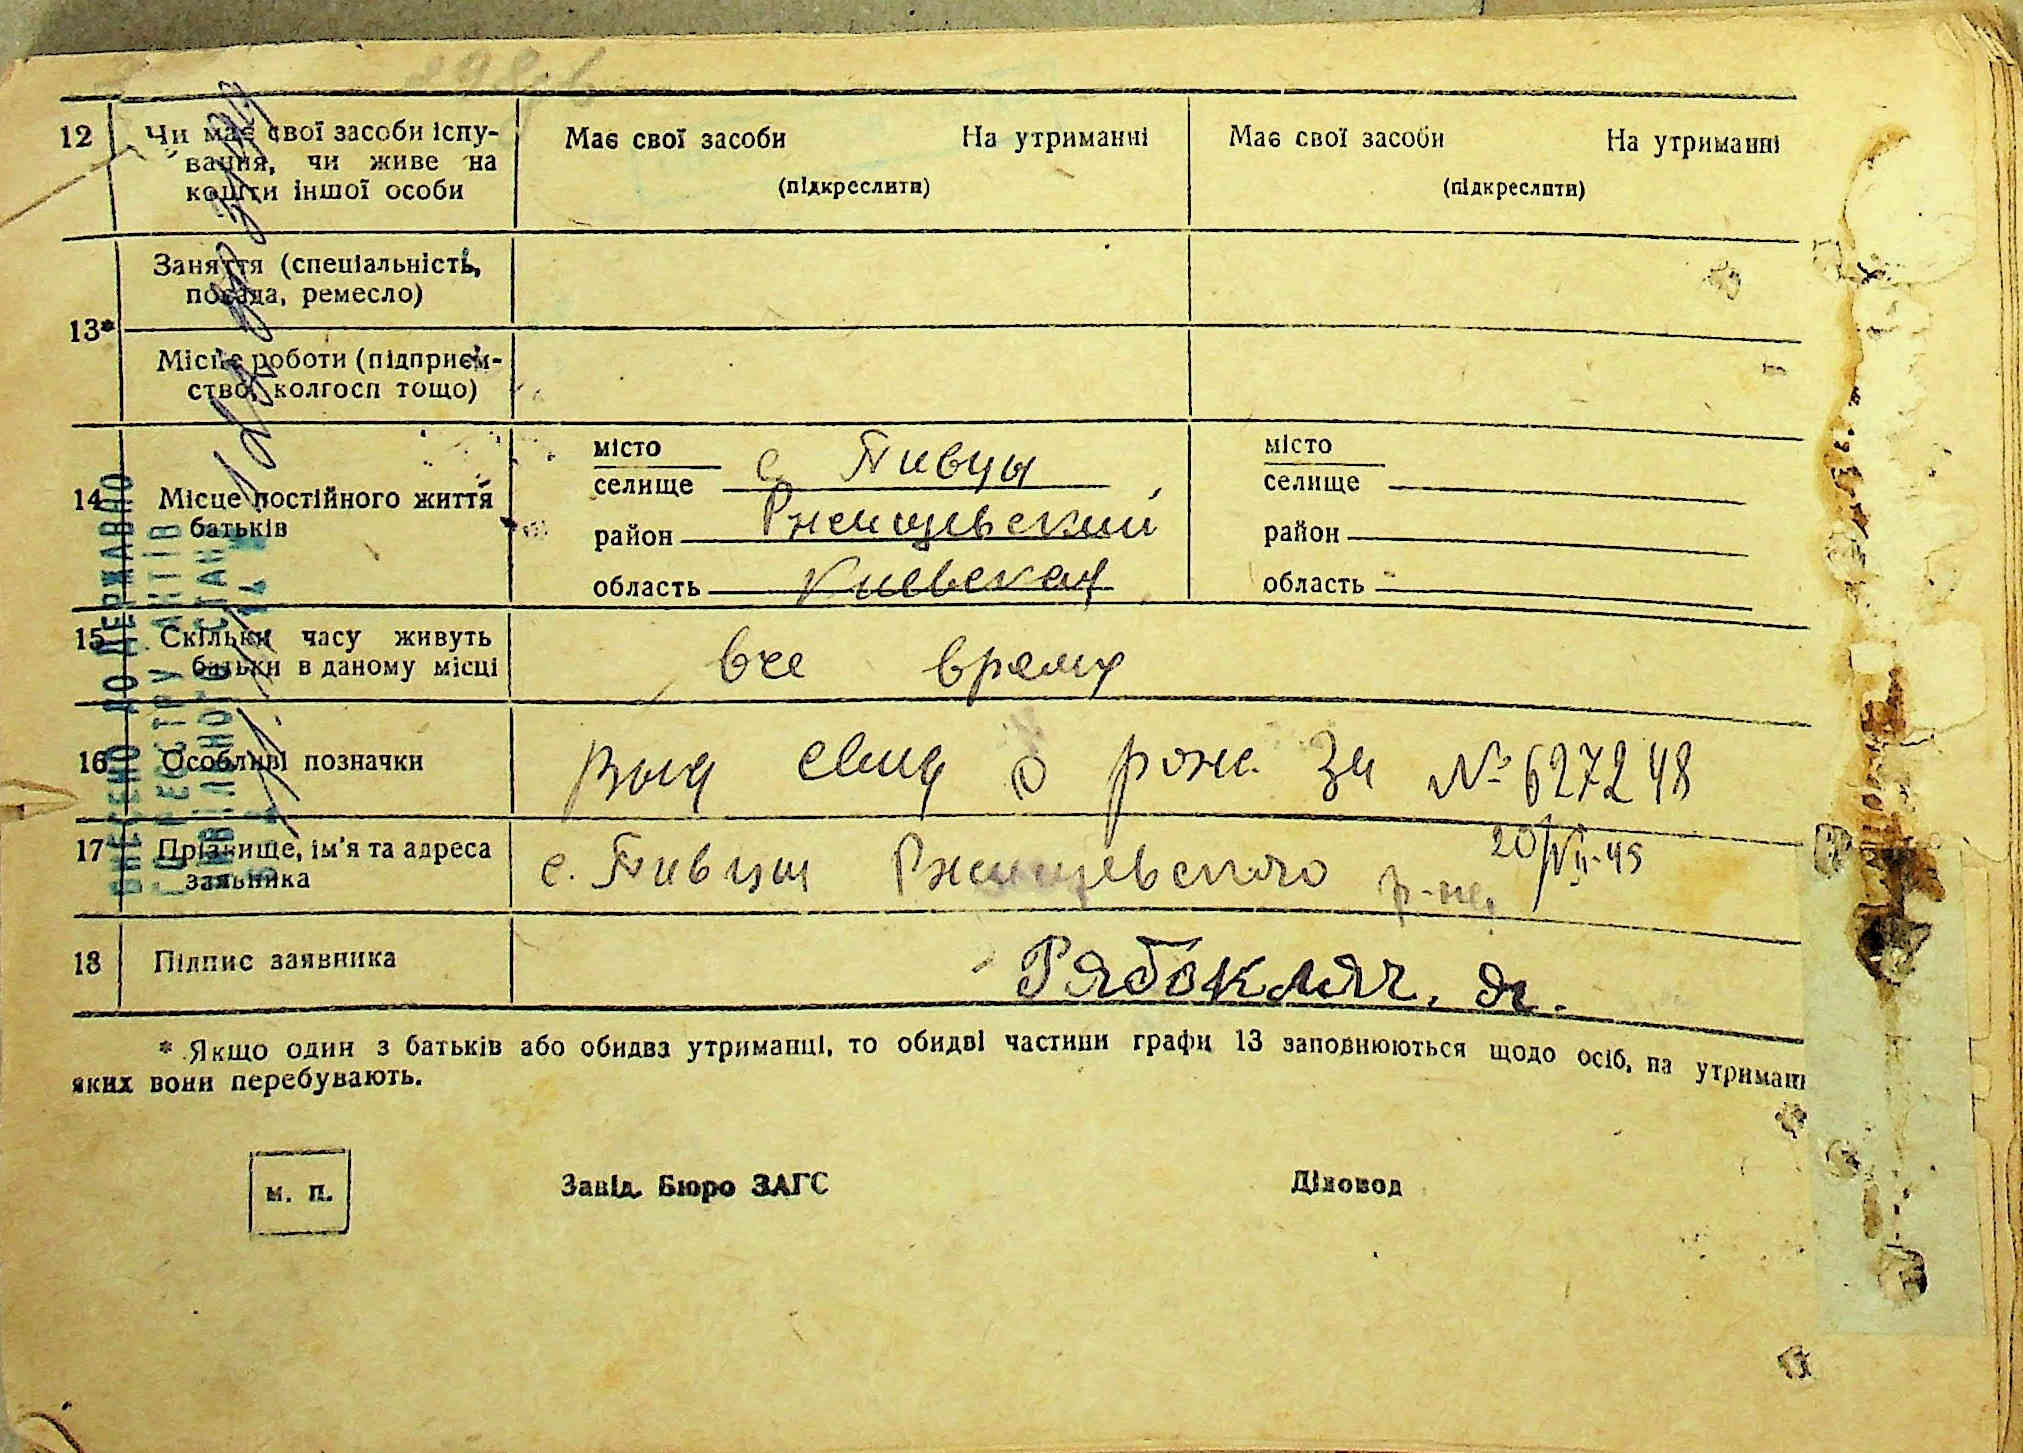 12 Чи має свої засоби існу-
вання, чи живе на
кошти іншої особи
Має свої засоби На утриманні
(підкреслити)
Має свої засоби На утриманні
(підкреслити)
13*
Заняття (спеціальність,
посада, ремесло)
Місце роботи (підприєм-
ство, колгосп тощо)
14 Місце постійного життя
батьків
місто
селище с. Пивцы
район Ржищевский
область Киевская
місто
селище
район
область
15 Скільки часу живуть
батьки в даному місці
все время
16 Особливі позначки
Выд свид о рожд. за № 627248
20/VII-49
17 Прізвище, ім'я та адреса
заявника
с. Пивцы Ржищевского р-на,
18 Підпис заявника
Рябокляч. Я.
* Якщо один з батьків або обидва утриманці, то обидві частини графи 13 заповнюються щодо осіб, на утриман
яких вони перебувають.
м. п.
Завід. Бюро ЗАГС
Діловод
ВНЕСЕНО ДО ДЕРЖАВНО
ГО РЕЄСТРУ АКТІВ
ЦИВІЛЬНОГО СТАНУ